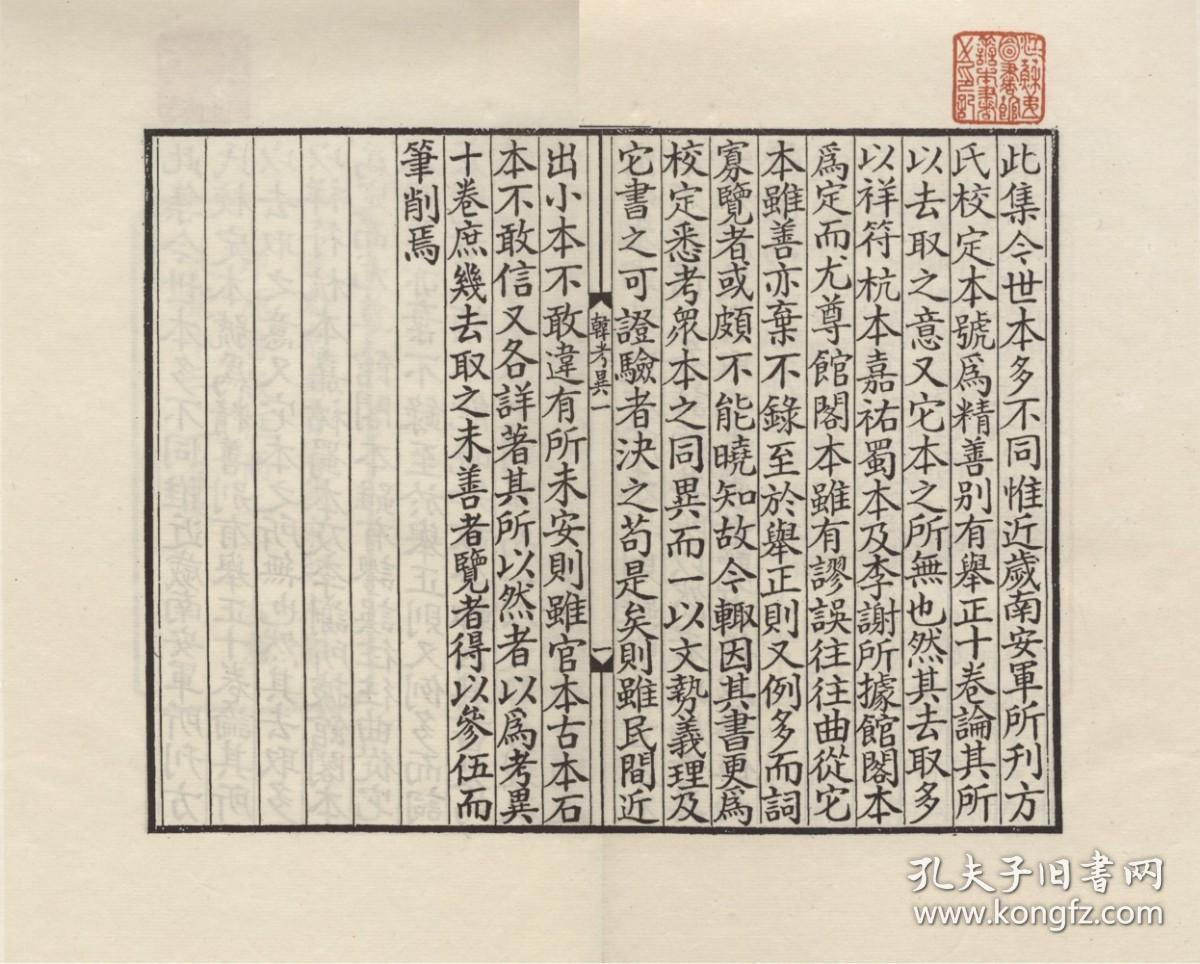 此集今世本多不同惟近歲南安軍所刊方
氏校定本號爲精善别有舉正十卷論其所
以去取之意又它本之所無也然其去取多
以祥符杭本嘉祐蜀本及李謝所據館閣本
爲定而尤尊館閣本雖有謬誤往往曲從它
本雖善亦棄不錄至於舉正則又例多而詞
寡覽者或頗不能曉知故今輒因其書更爲
校定悉考衆本之同異而一以文勢義理及
它書之可證驗者決之苟是矣則雖民間近
韓考異一
一
出小本不敢違有所未安則雖官本古本石
本不敢信又各詳著其所以然者以爲考異
十卷庶幾去取之未善者覽者得以參伍而
筆削焉
孔夫子旧书网
www.kongfz.com